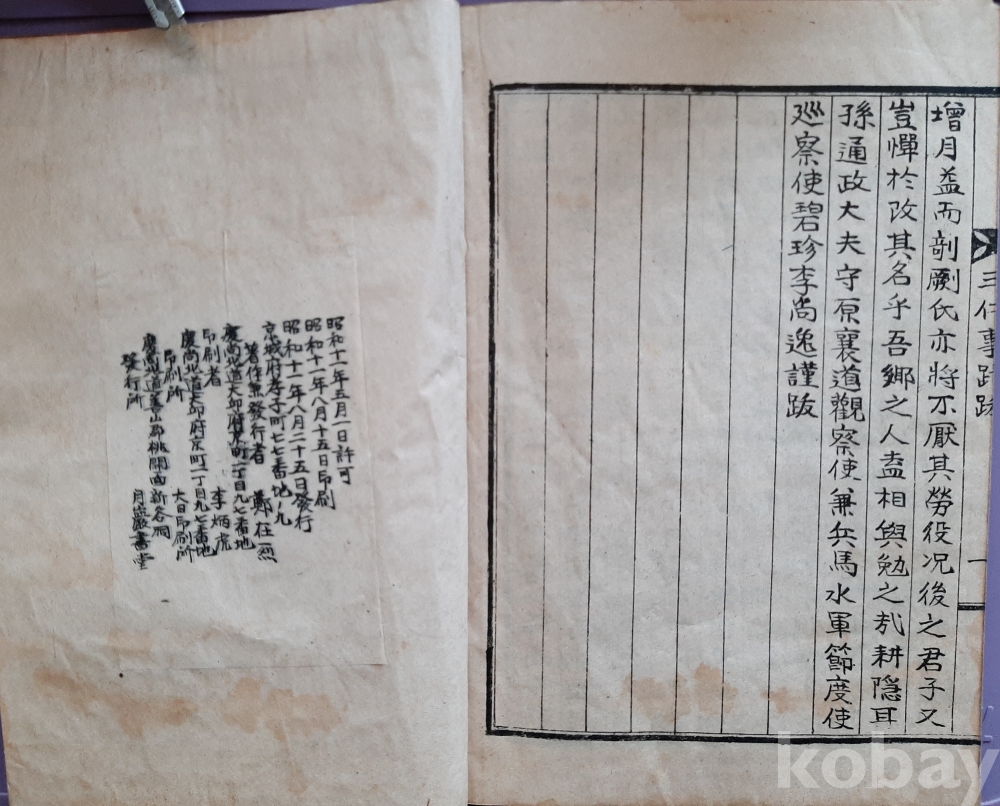 三仁事蹟跋
一
增月益而剞劂氏亦將不厭其勞役况後之君子又
豈憚於改其名乎吾鄉之人盍相與勉之㢤耕隱耳
孫通政大夫守原襄道觀察使兼兵馬水軍節度使
廵察使碧珍李尚逸謹跋
昭和十一年五月一日許可
昭和十一年八月十五日印刷
昭和十一年八月二十五日發行
京城府孝子町七七番地ノ九
著作兼發行者 鄭在烈
慶尚北道大邱府京町一丁目九七番地
印刷者 李炳虎
慶尚北道大邱府京町一丁目九七番地
印刷所 大日印刷所
慶尚北道善山郡桃開面新谷洞
發行所 月巖書堂
kobay